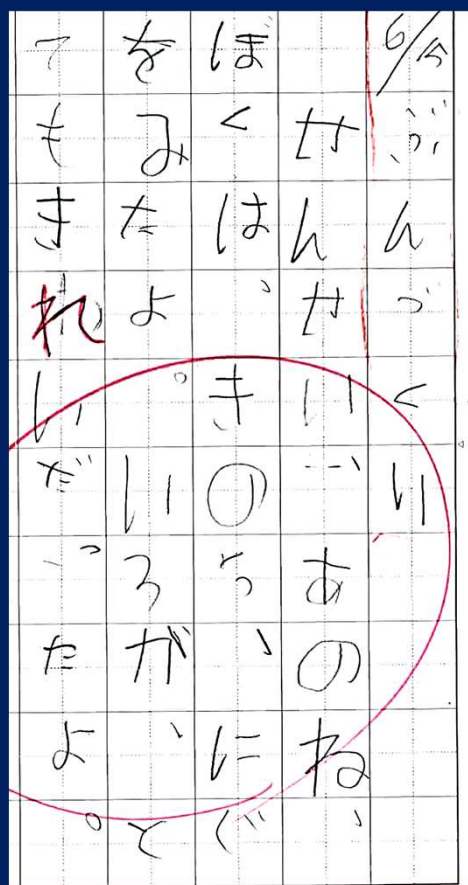 6/5 ぶんづくり
せんせい、あのね、
ぼくは、きのう、にじ
をみたよ。いろが、と
てもきれいだったよ。